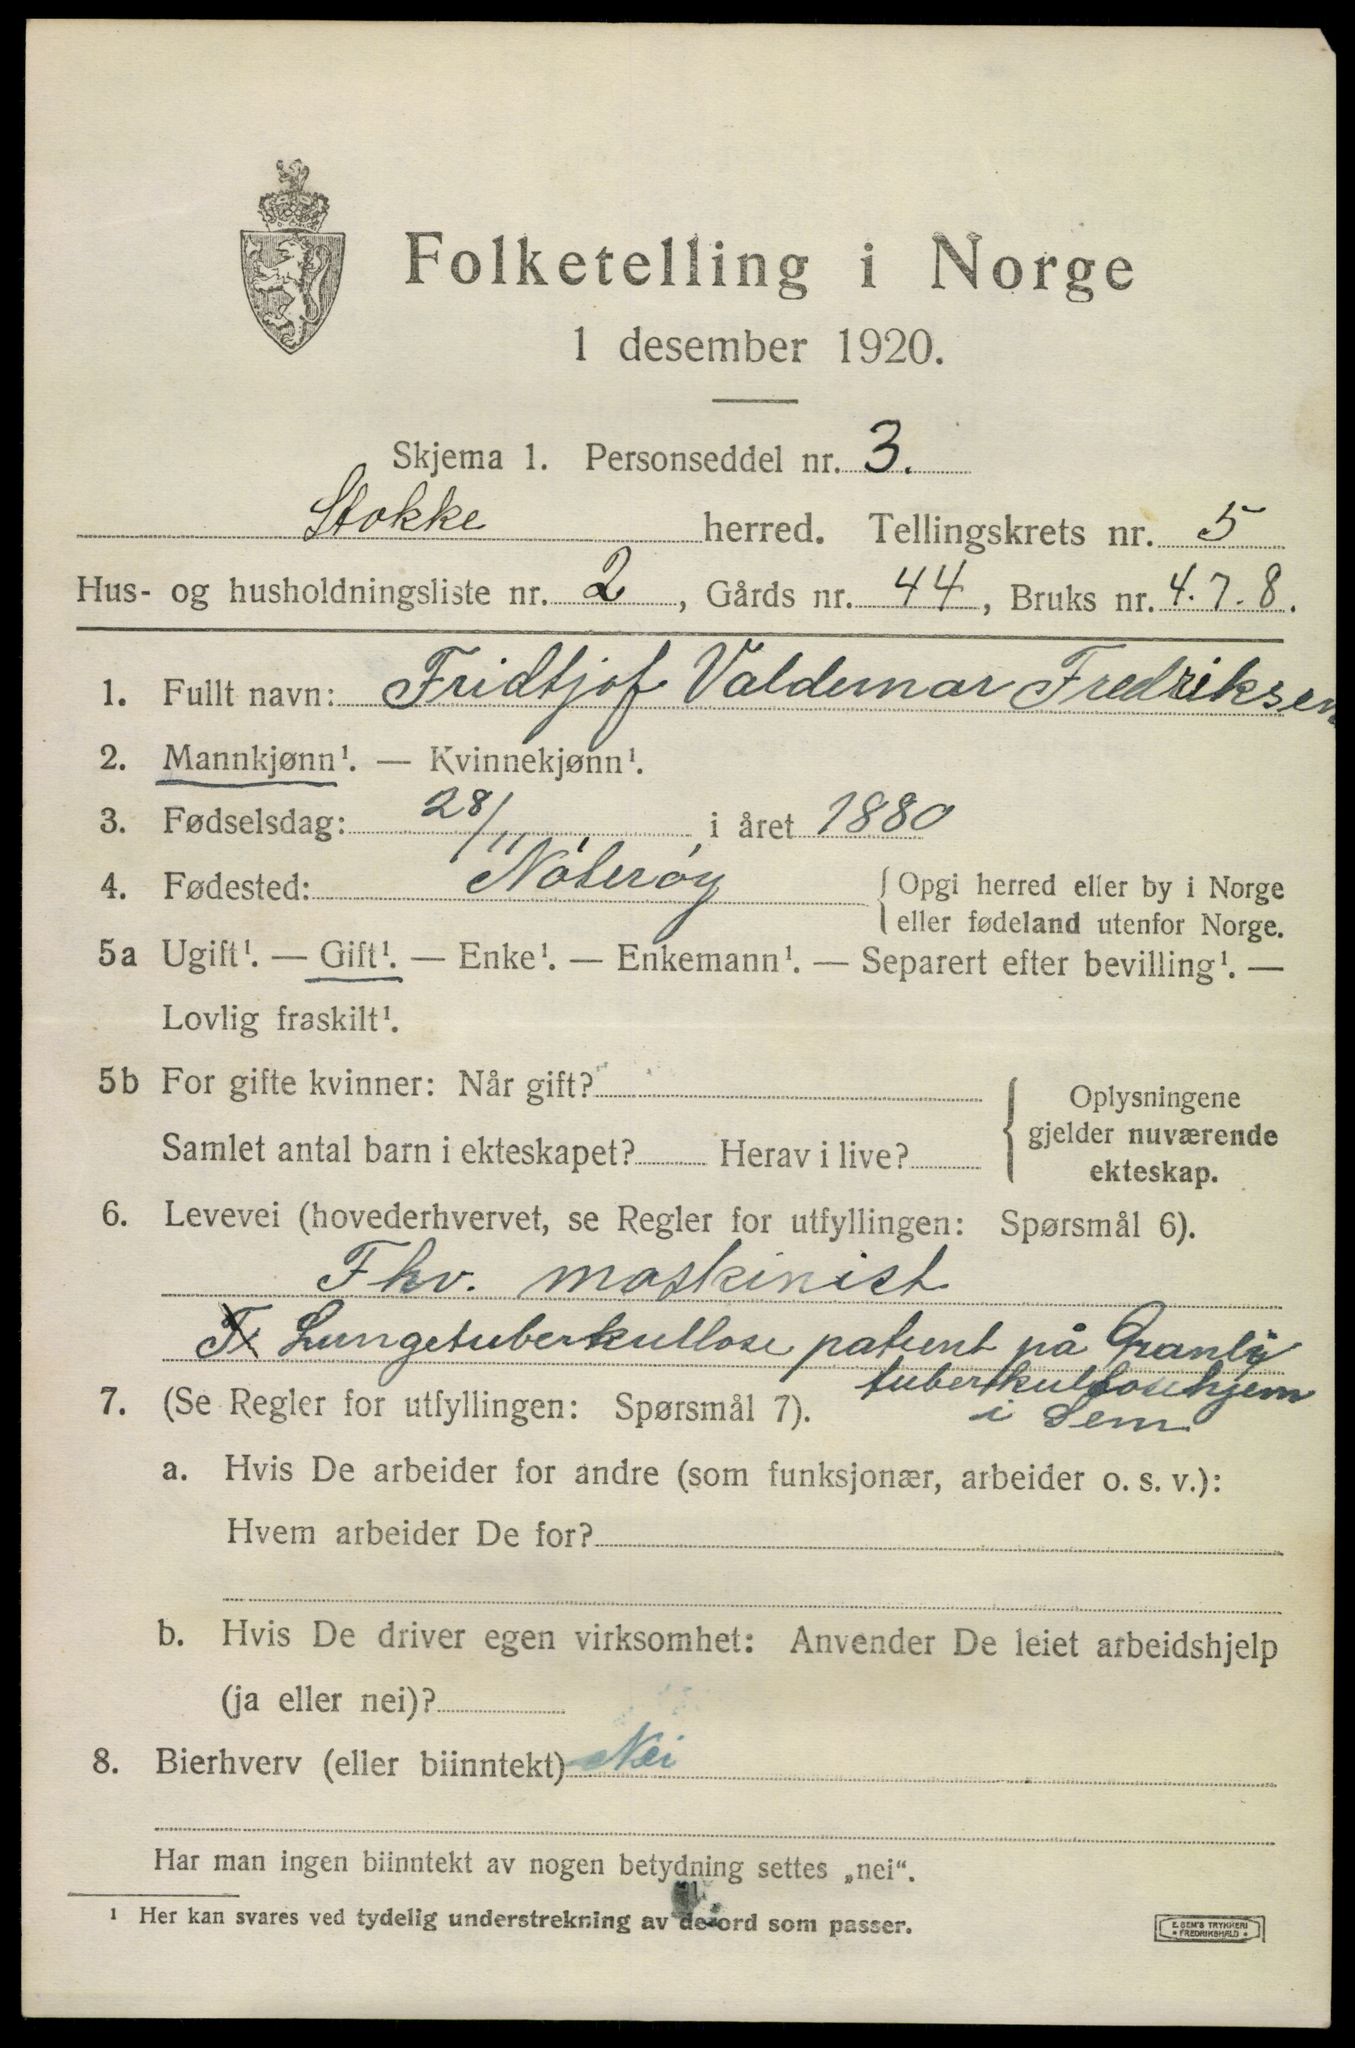 Folketelling i Norge
1 desember 1920.
Skjema 1. Personseddel nr. 3.
Stokke herred. Tellingskrets nr. 5
Hus- og husholdningsliste nr. 2, Gårds nr. 44, Bruks nr. 4.7.8.
1. Fullt navn: Fridtjof Valdemar Fredriksen
2. Mannkjønn¹. — Kvinnekjønn¹.
3. Fødselsdag: 28/11 i året 1880
4. Fødested: Nøterøy { Opgi herred eller by i Norge
eller fødeland utenfor Norge.
5a Ugift¹. — Gift¹. — Enke¹. — Enkemann¹. — Separert efter bevilling¹. —
Lovlig fraskilt¹.
5b For gifte kvinner: Når gift?
Samlet antal barn i ekteskapet? Herav i live?
Oplysningene
gjelder nuværende
ekteskap.
6. Levevei (hovederhvervet, se Regler for utfyllingen: Spørsmål 6).
Fhv. maskinist
Lungetuberkulløse patient på Granly
tuberkulløsehjem
i Sem
7. (Se Regler for utfyllingen: Spørsmål 7).
a. Hvis De arbeider for andre (som funksjonær, arbeider o. s. v.):
Hvem arbeider De for?
b. Hvis De driver egen virksomhet: Anvender De leiet arbeidshjelp
(ja eller nei)?
8. Bierhverv (eller biinntekt) Nei
Har man ingen biinntekt av nogen betydning settes „nei“.
¹ Her kan svares ved tydelig understrekning av de ord som passer.
E. SEM'S TRYKKERI
* FREDRIKSHALD *